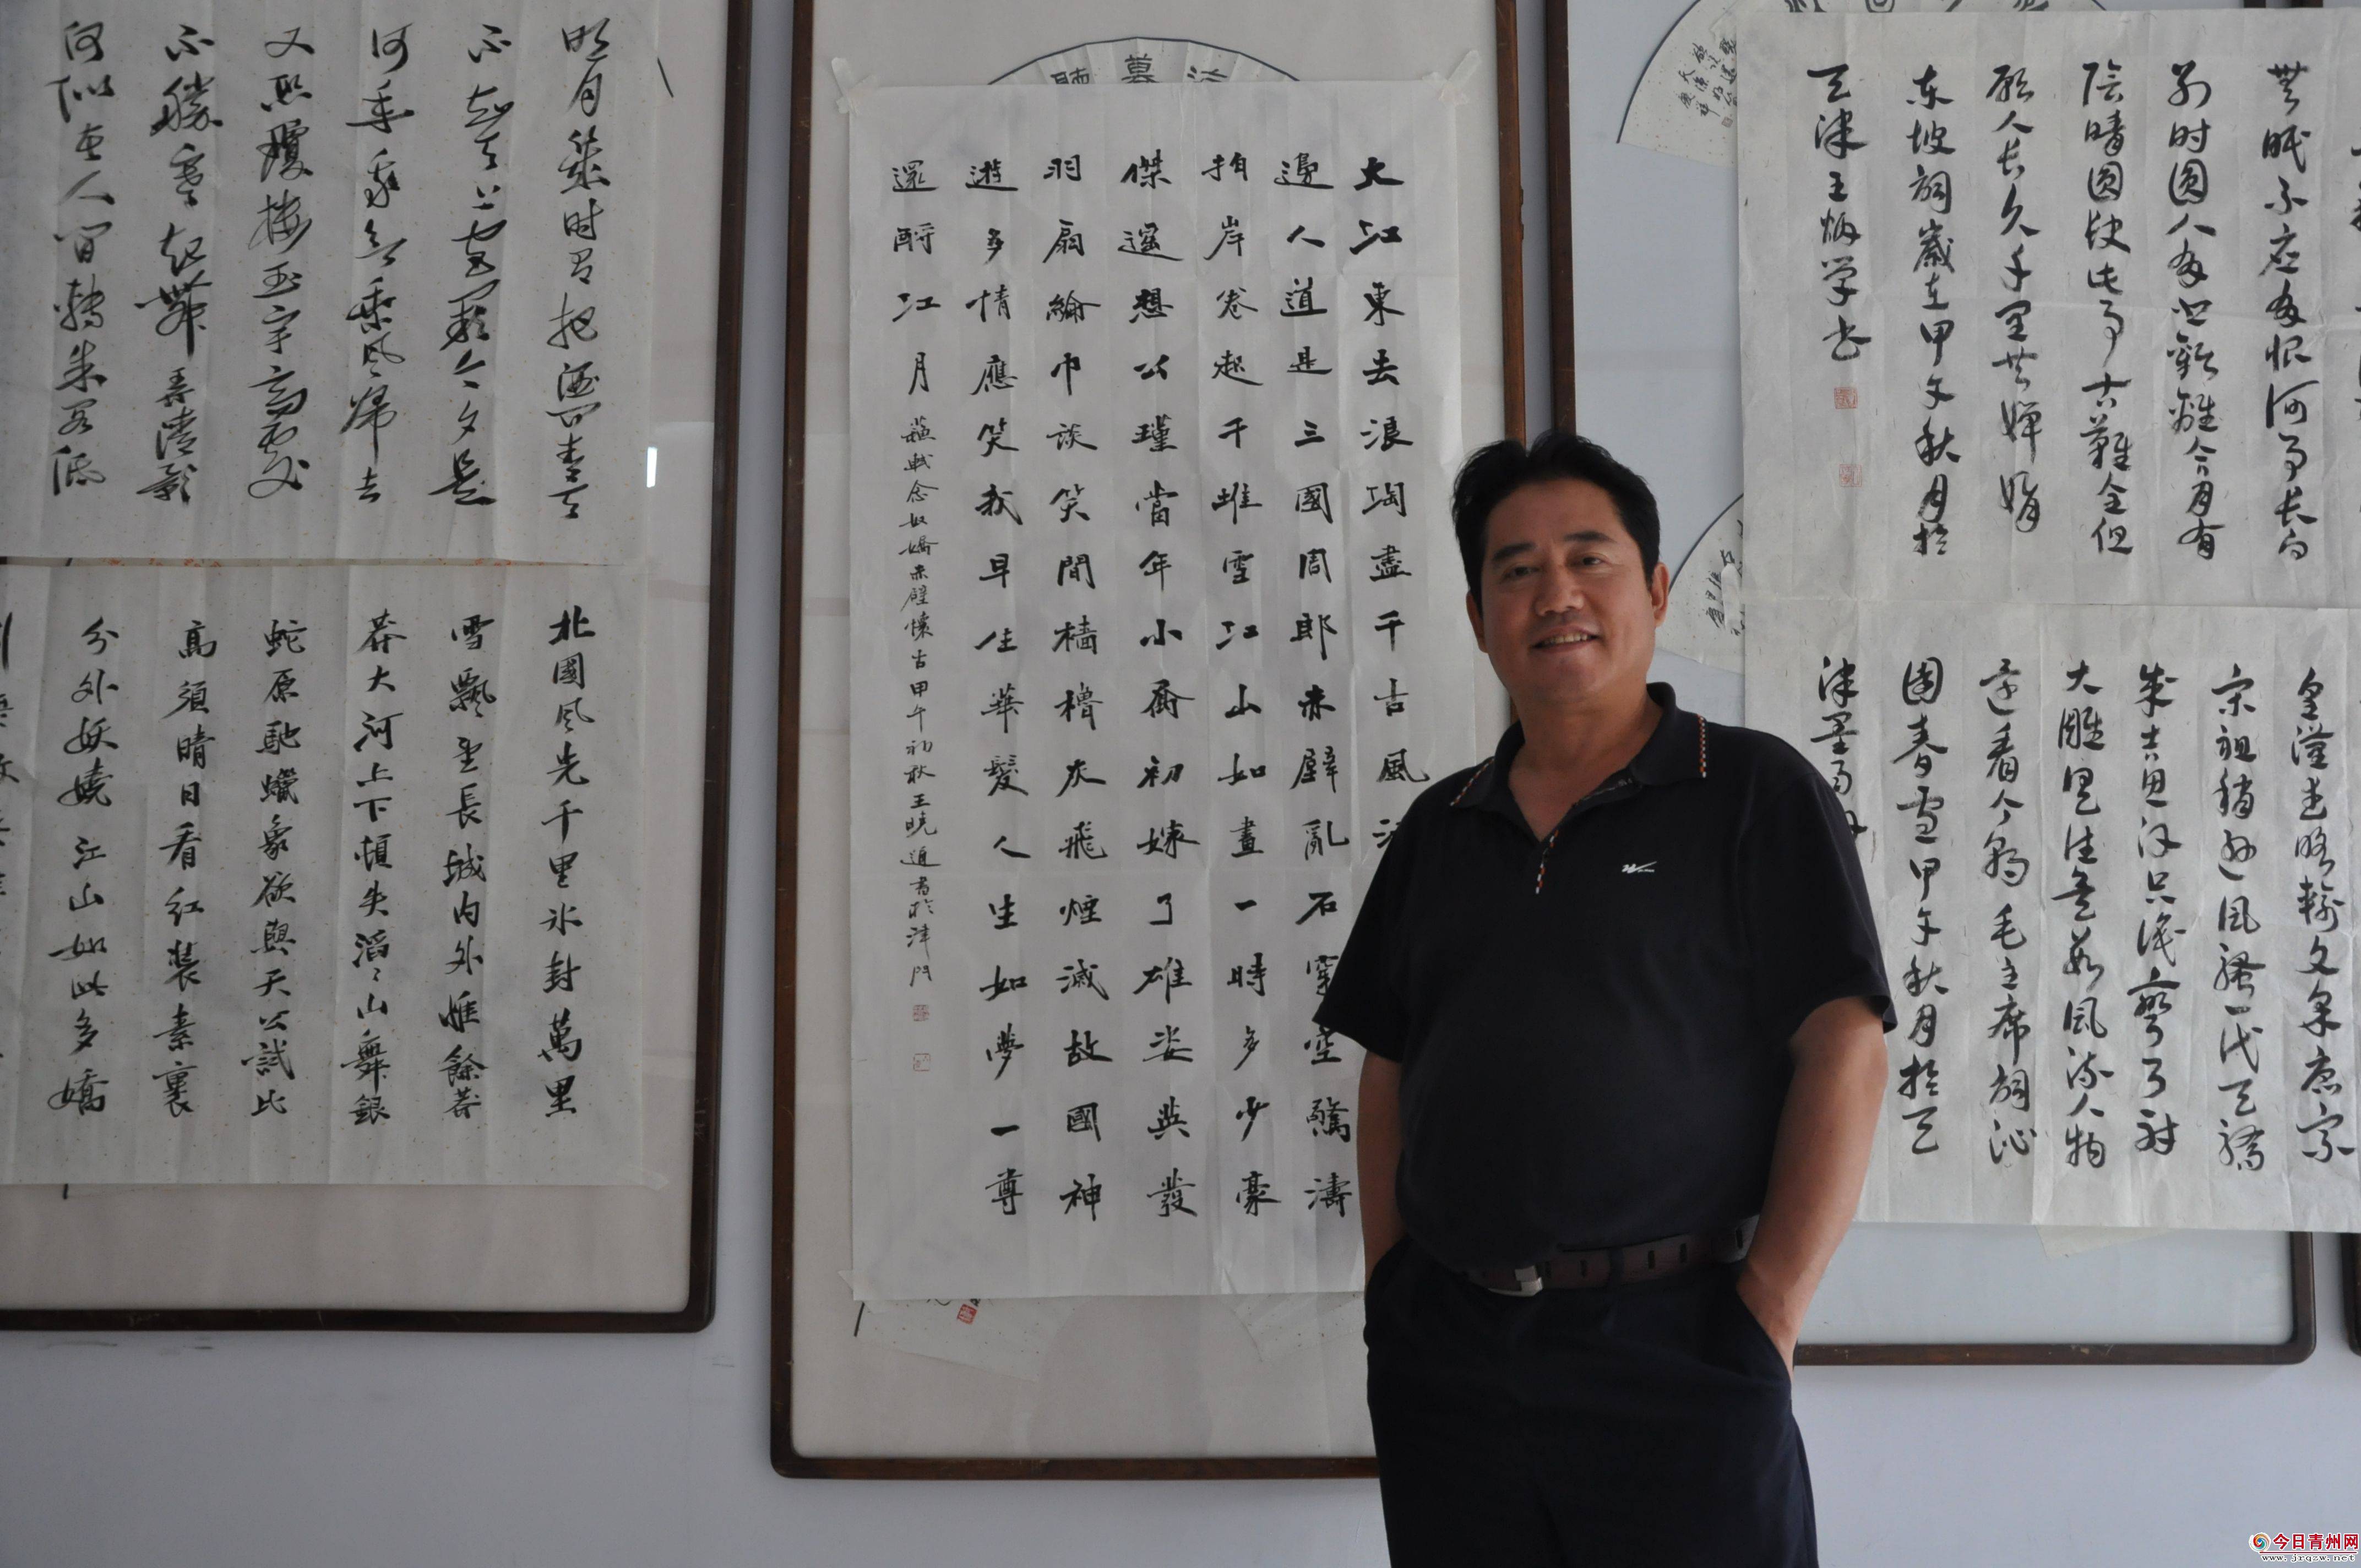 明月幾时有把酒问青天
不知天上宫闕今夕是
何年我欲乘风归去
又恐瓊楼玉宇高處
不勝寒起舞弄清影
何似在人间轉朱阁低
北國风光千里冰封萬里
雪飄望長城内外惟餘莽
莽大河上下頓失滔〻山舞銀
蛇原馳蠟象欲與天公試比
高須晴日看红装素裹
分外妖嬈江山如此多嬌
大江東去浪淘盡千古風流
邊人道是三國周郎赤壁亂石穿空驚濤
拍岸卷起千堆雪江山如畫一時多少豪
傑遥想公瑾當年小喬初嫁了雄姿英發
羽扇綸巾談笑間樯櫓灰飛煙滅故國神
遊多情應笑我早生華髮人生如夢一尊
還酹江月
蘇軾念奴嬌赤壁懷古甲午初秋王晓道書於津門
無眠不应有恨何事长向
别时圆人有悲歡離合月有
陰晴圆缺此事古難全但
願人长久千里共婵娟
东坡词歲在甲午秋月於
天津王炳学书
皇漢武略輸文采唐宗
宋祖稍遜风骚一代天驕
成吉思汗只识弯弓射
大雕俱往矣数风流人物
还看今朝毛主席词沁
園春雪甲午秋月於天
津
今日青州网
www.jrqzw.net